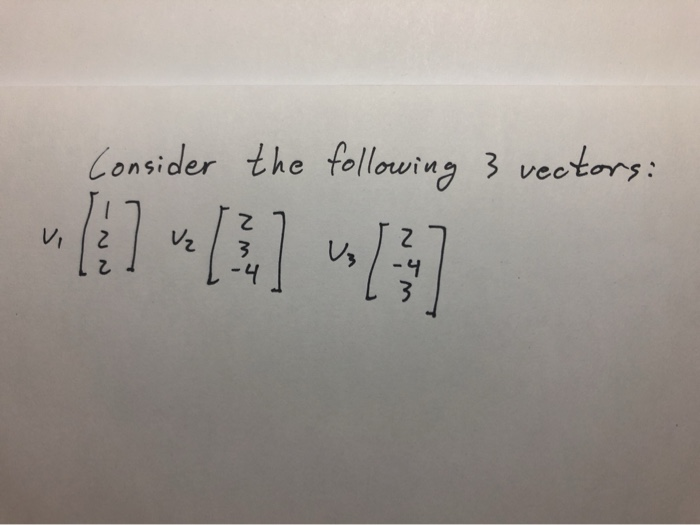 Consider the following 3 vectors:
v₁ [1 2 2] v₂ [2 3 -4] v₃ [2 -4 3]